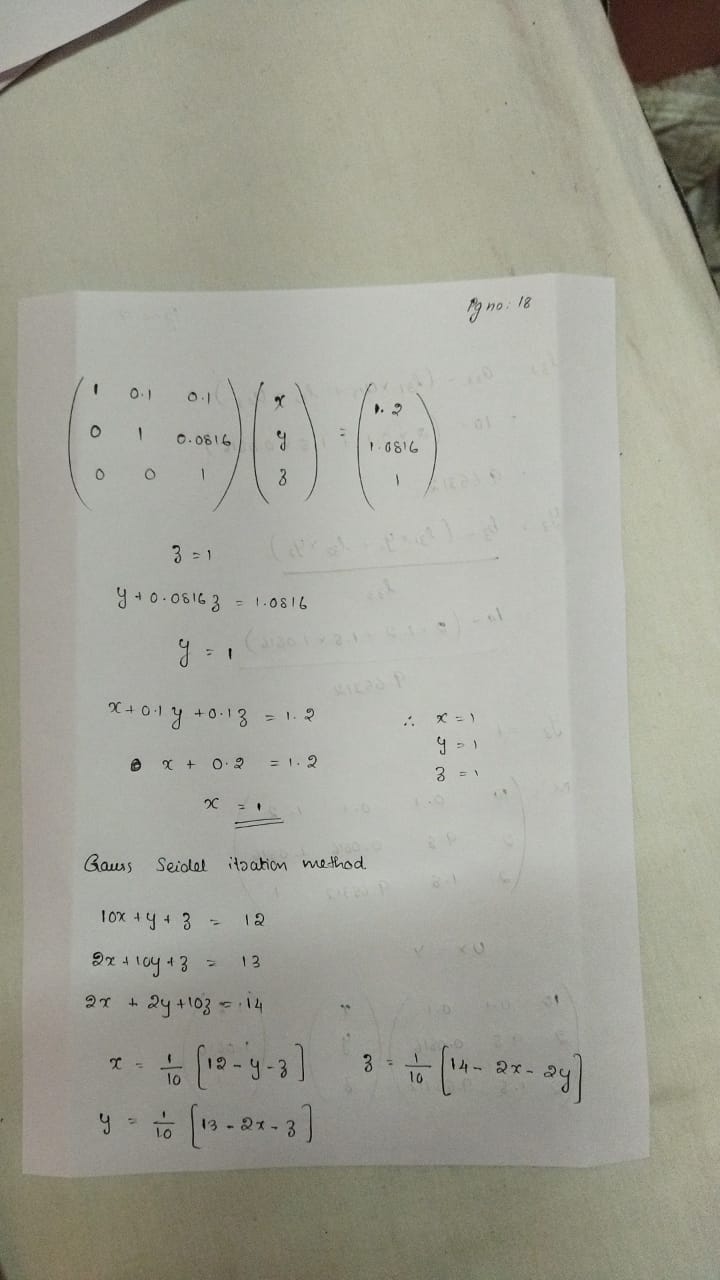 Pg no: 18
1 0.1 0.1 x 1.2
0 1 0.0816 y = 1.0816
0 0 1 z 1
z = 1
y + 0.0816z = 1.0816
y = 1
x + 0.1y + 0.1z = 1.2 ∴ x = 1
x + 0.2 = 1.2 y = 1
x = 1 z = 1
Gauss Seidel itration method
10x + y + z = 12
2x + 10y + z = 13
2x + 2y + 10z = 14
x = 1/10 [12 - y - z] z = 1/10 [14 - 2x - 2y]
y = 1/10 [13 - 2x - z]